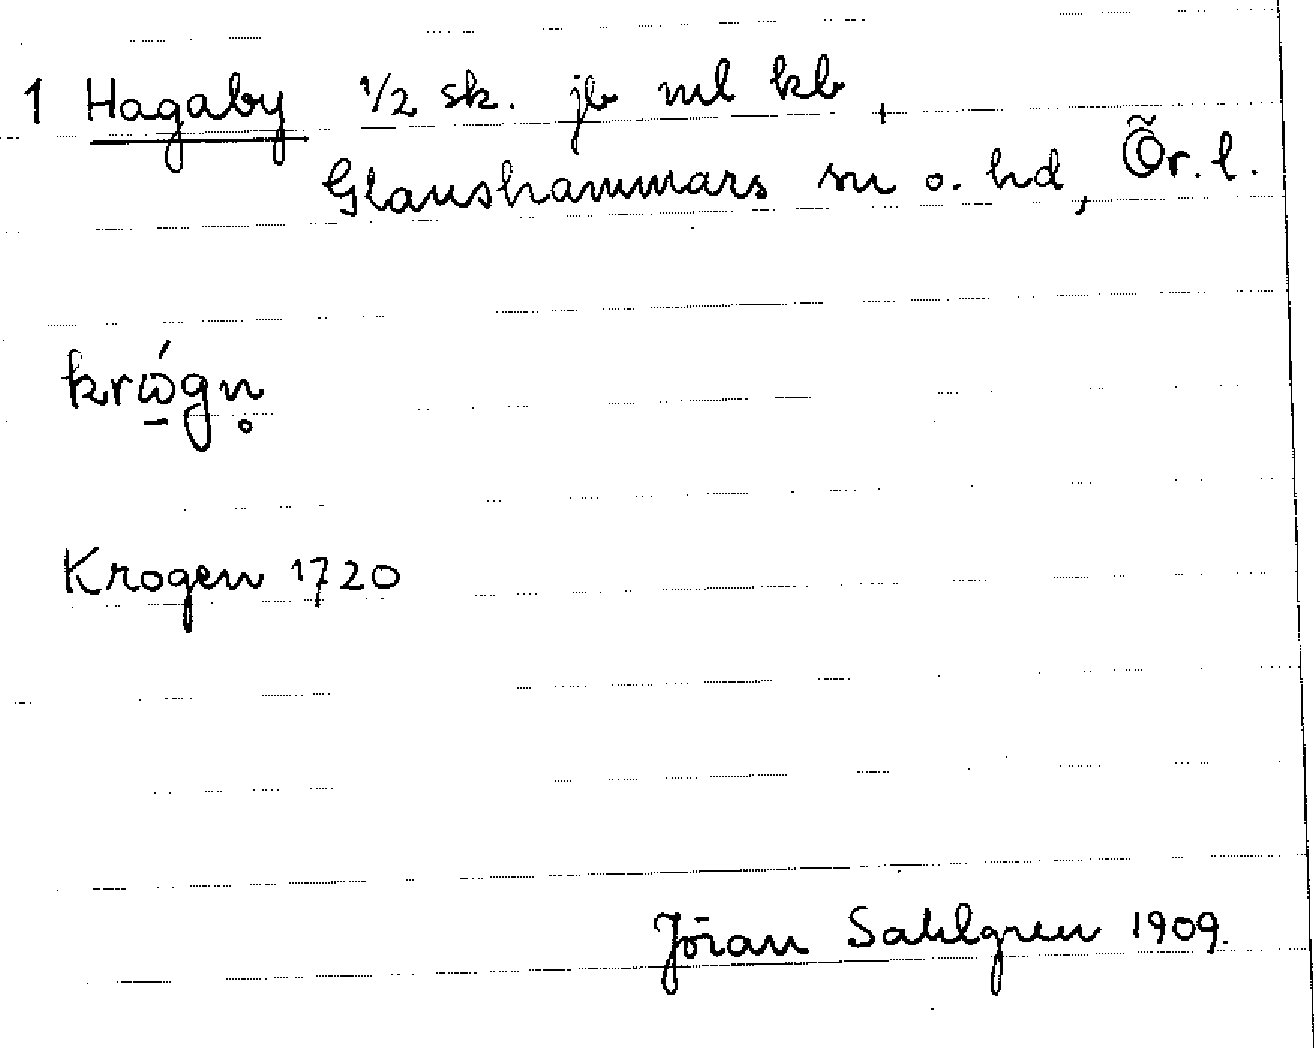 1 Hagaby 1/2 sk. jb ml kb +
Glanshammars sn o. hd, Ör. l.
krώ̱gn̥
Krogen 1720
Jöran Sahlgren 1909.